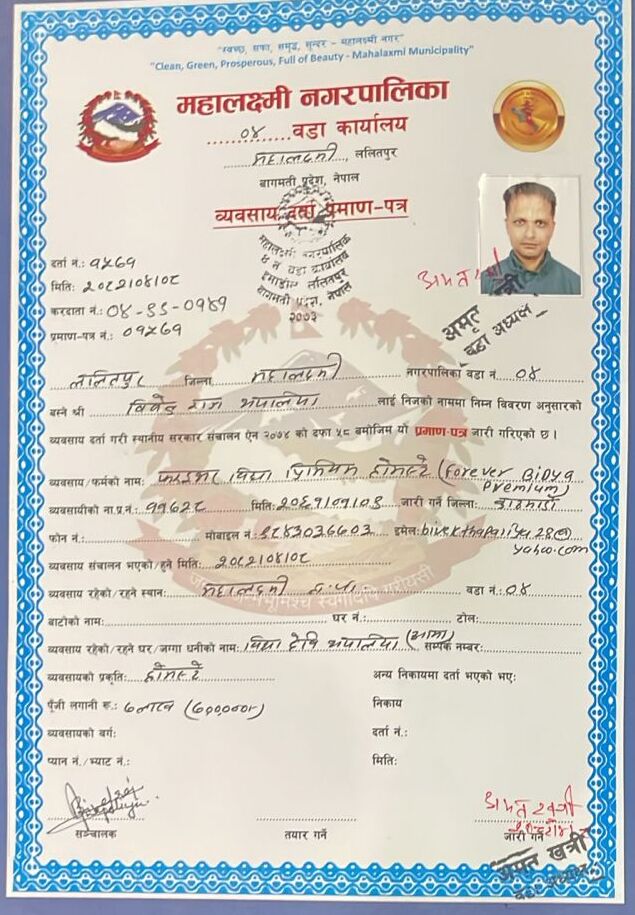 "स्वच्छ, सफा, समृद्ध, सुन्दर - महालक्ष्मी नगर"
"Clean, Green, Prosperous, Full of Beauty - Mahalaxmi Municipality"
महालक्ष्मी नगरपालिका
०४ वडा कार्यालय
महालक्ष्मी, ललितपुर
बागमती प्रदेश, नेपाल
व्यवसाय दर्ता प्रमाण-पत्र
महालक्ष्मी नगरपालिका
४ नं वडा कार्यालय
इमाडोल ललितपुर
बागमती प्रदेश, नेपाल
२०७३
दर्ता नं.:
मिति: २०८२।०४।०८
करदाता नं.:
प्रमाण-पत्र नं.:
अमृत खत्री
वडा अध्यक्ष
ललितपुर जिल्ला महालक्ष्मी नगरपालिका वडा नं. ०४
बस्ने श्री विवेक राज थपालिया लाई निजको नाममा निम्न बिवरण अनुसारको
व्यवसाय दर्ता गरी स्थानीय सरकार संचालन ऐन २०७४ को दफा ५८ बमोजिम यो प्रमाण-पत्र जारी गरिएको छ।
व्यवसाय/फर्मको नाम: फरइभर विद्या प्रिमियम होमस्टे (Forever Bidya Premium)
व्यवसायीको ना.प्र.नं.: मिति: जारी गर्ने जिल्ला:
फोन नं.: मोबाइल नं.: ९८४३०३६६०३ इमेल: bivekthapaliya28@yahoo.com
व्यवसाय संचालन भएको/हुने मिति: २०८२।०४।०८
व्यवसाय रहेको/रहने स्थान: महालक्ष्मी न.पा. वडा नं.: ०४
बाटोको नाम: घर नं.: टोल:
व्यवसाय रहेको/रहने घर/जग्गा धनीको नाम: विद्या देवि थपालिया (आमा) सम्पर्क नम्बर:
व्यवसायको प्रकृति: होमस्टे अन्य निकायमा दर्ता भएको भए:
पूँजी लगानी रु.: ७ लाख (७००,०००।-) निकाय
व्यवसायको वर्ग: दर्ता नं.:
प्यान नं./भ्याट नं.: मिति:
अमृत खत्री
सञ्चालक तयार गर्ने जारी गर्ने
अमृत खत्री
वडा अध्यक्ष